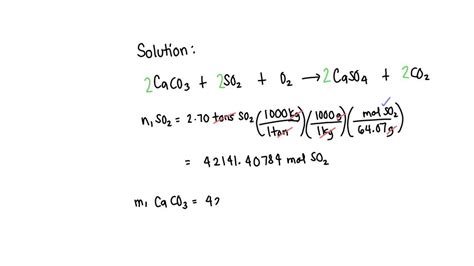 Solution:
2CaCO3 + 2SO2 + O2 → 2CaSO4 + 2CO2
n, SO2 = 2.70 tons SO2 (1000 kg / 1 ton) (1000 g / 1 kg) (mol SO2 / 64.07 g)
= 42141.40784 mol SO2
m, CaCO3 = 42